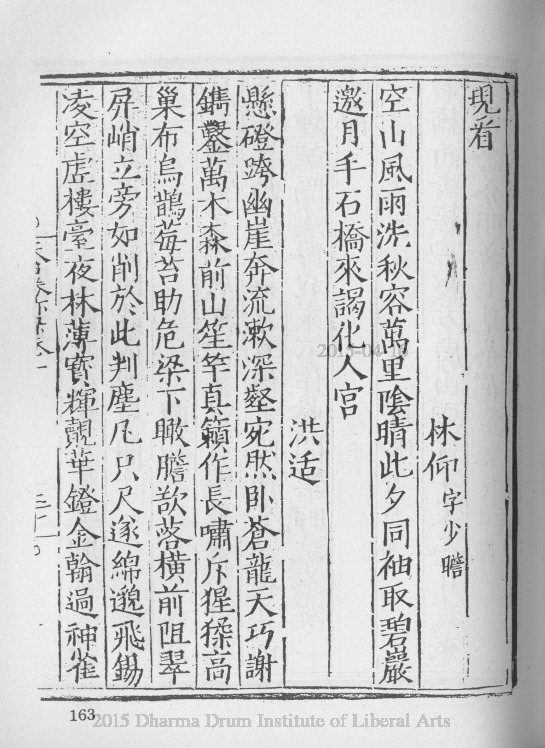 現看
林仰字少瞻
空山風雨洗秋容萬里陰晴此夕同袖取碧巖
邀月手石橋來謁化人宮
洪适
懸磴跨幽崖奔流漱深壑宛然卧蒼龍天巧謝
鐫鑿萬木森前山笙竽真籟作長嘯斥猩猱高
巢布烏鵲莓苔助危梁下瞰膽欲落橫前阻翠
屏峭立旁如削於此判塵凡只尺遂綿邈飛錫
凌空虛樓臺夜林薄寶輝覿華鐙金翰過神雀
163
2015 Dharma Drum Institute of Liberal Arts